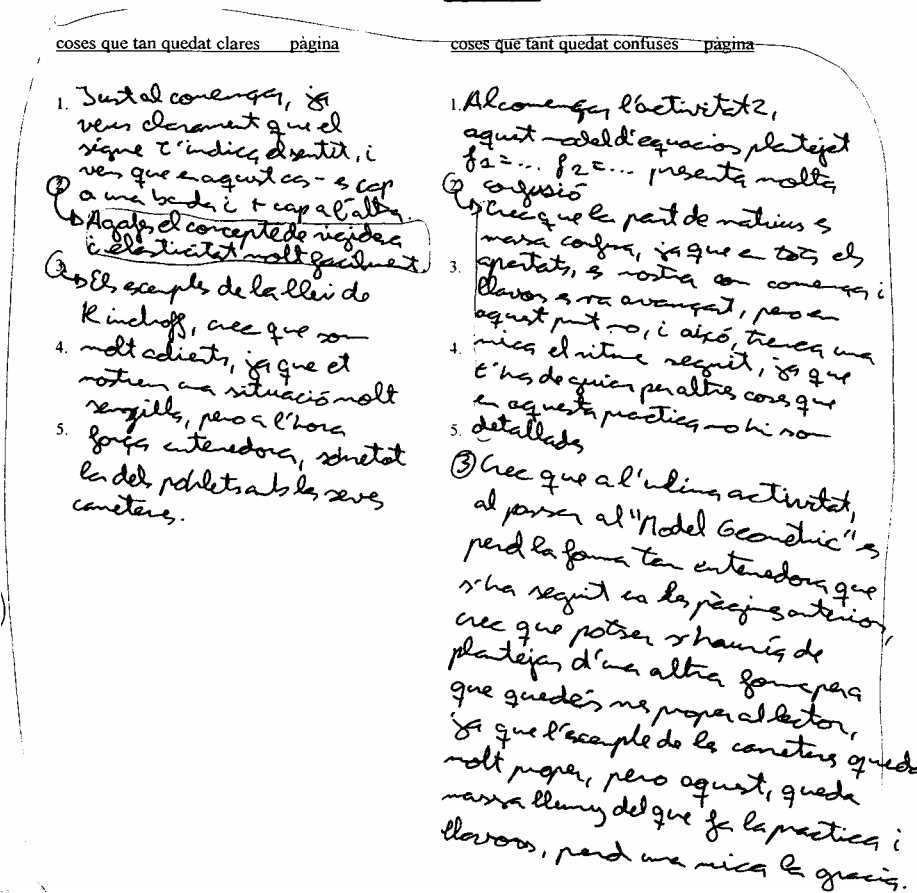 coses que tan quedat clares pàgina
1. Just al començar, ja
veus clarament que el
signe t'indica el sentit, i
veus que en aquest cas - es cap
a una banda i + cap a l'altra.
② Agafes el concepte de rigidesa
i elasticitat molt facilment.
③ Els exemples de la llei de
Kirchoff, crec que son
4. molt adients, ja que et
mostren una situació molt
senzilla, pero a l'hora
5. força entenedora, sobretot
la dels poblets amb les seves
carreteres.
coses que tant quedat confuses pàgina
1. Al començar l'activitat 2,
aquest model d'equacions plantejat
f1=... f2=... presenta molta
confusió
② Crec que la part de matrius es
massa confusa, ja que en tots els
3. apartats, es mostra com comença i
llavors es va avançant, pero en
aquest punt no, i això, trenca una
4. mica el ritme seguit, ja que
t'has de guiar per altres coses que
en aquesta practica no hi son
5. detallades
③ Crec que a l'ultima activitat,
al passar al "Model Geomètric" es
perd la forma tan entenedora que
s'ha seguit en les pàgines anteriors,
crec que potser s'hauría de
plantejar d'una altra forma pera
que quedés mes proper al lector,
ja que l'exemple de les carreteres queda
molt proper, pero aquest, queda
massa lluny del que fa la practica i
llavors, perd una mica la gracia.